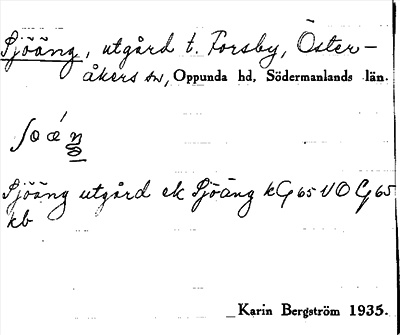 Sjöäng, utgård t. Forsby, Öster-
åkers sn, Oppunda hd, Södermanlands län.
Sjöäng utgård ek Sjöäng kG 65 VO G 65
kb
Karin Bergström 1935.